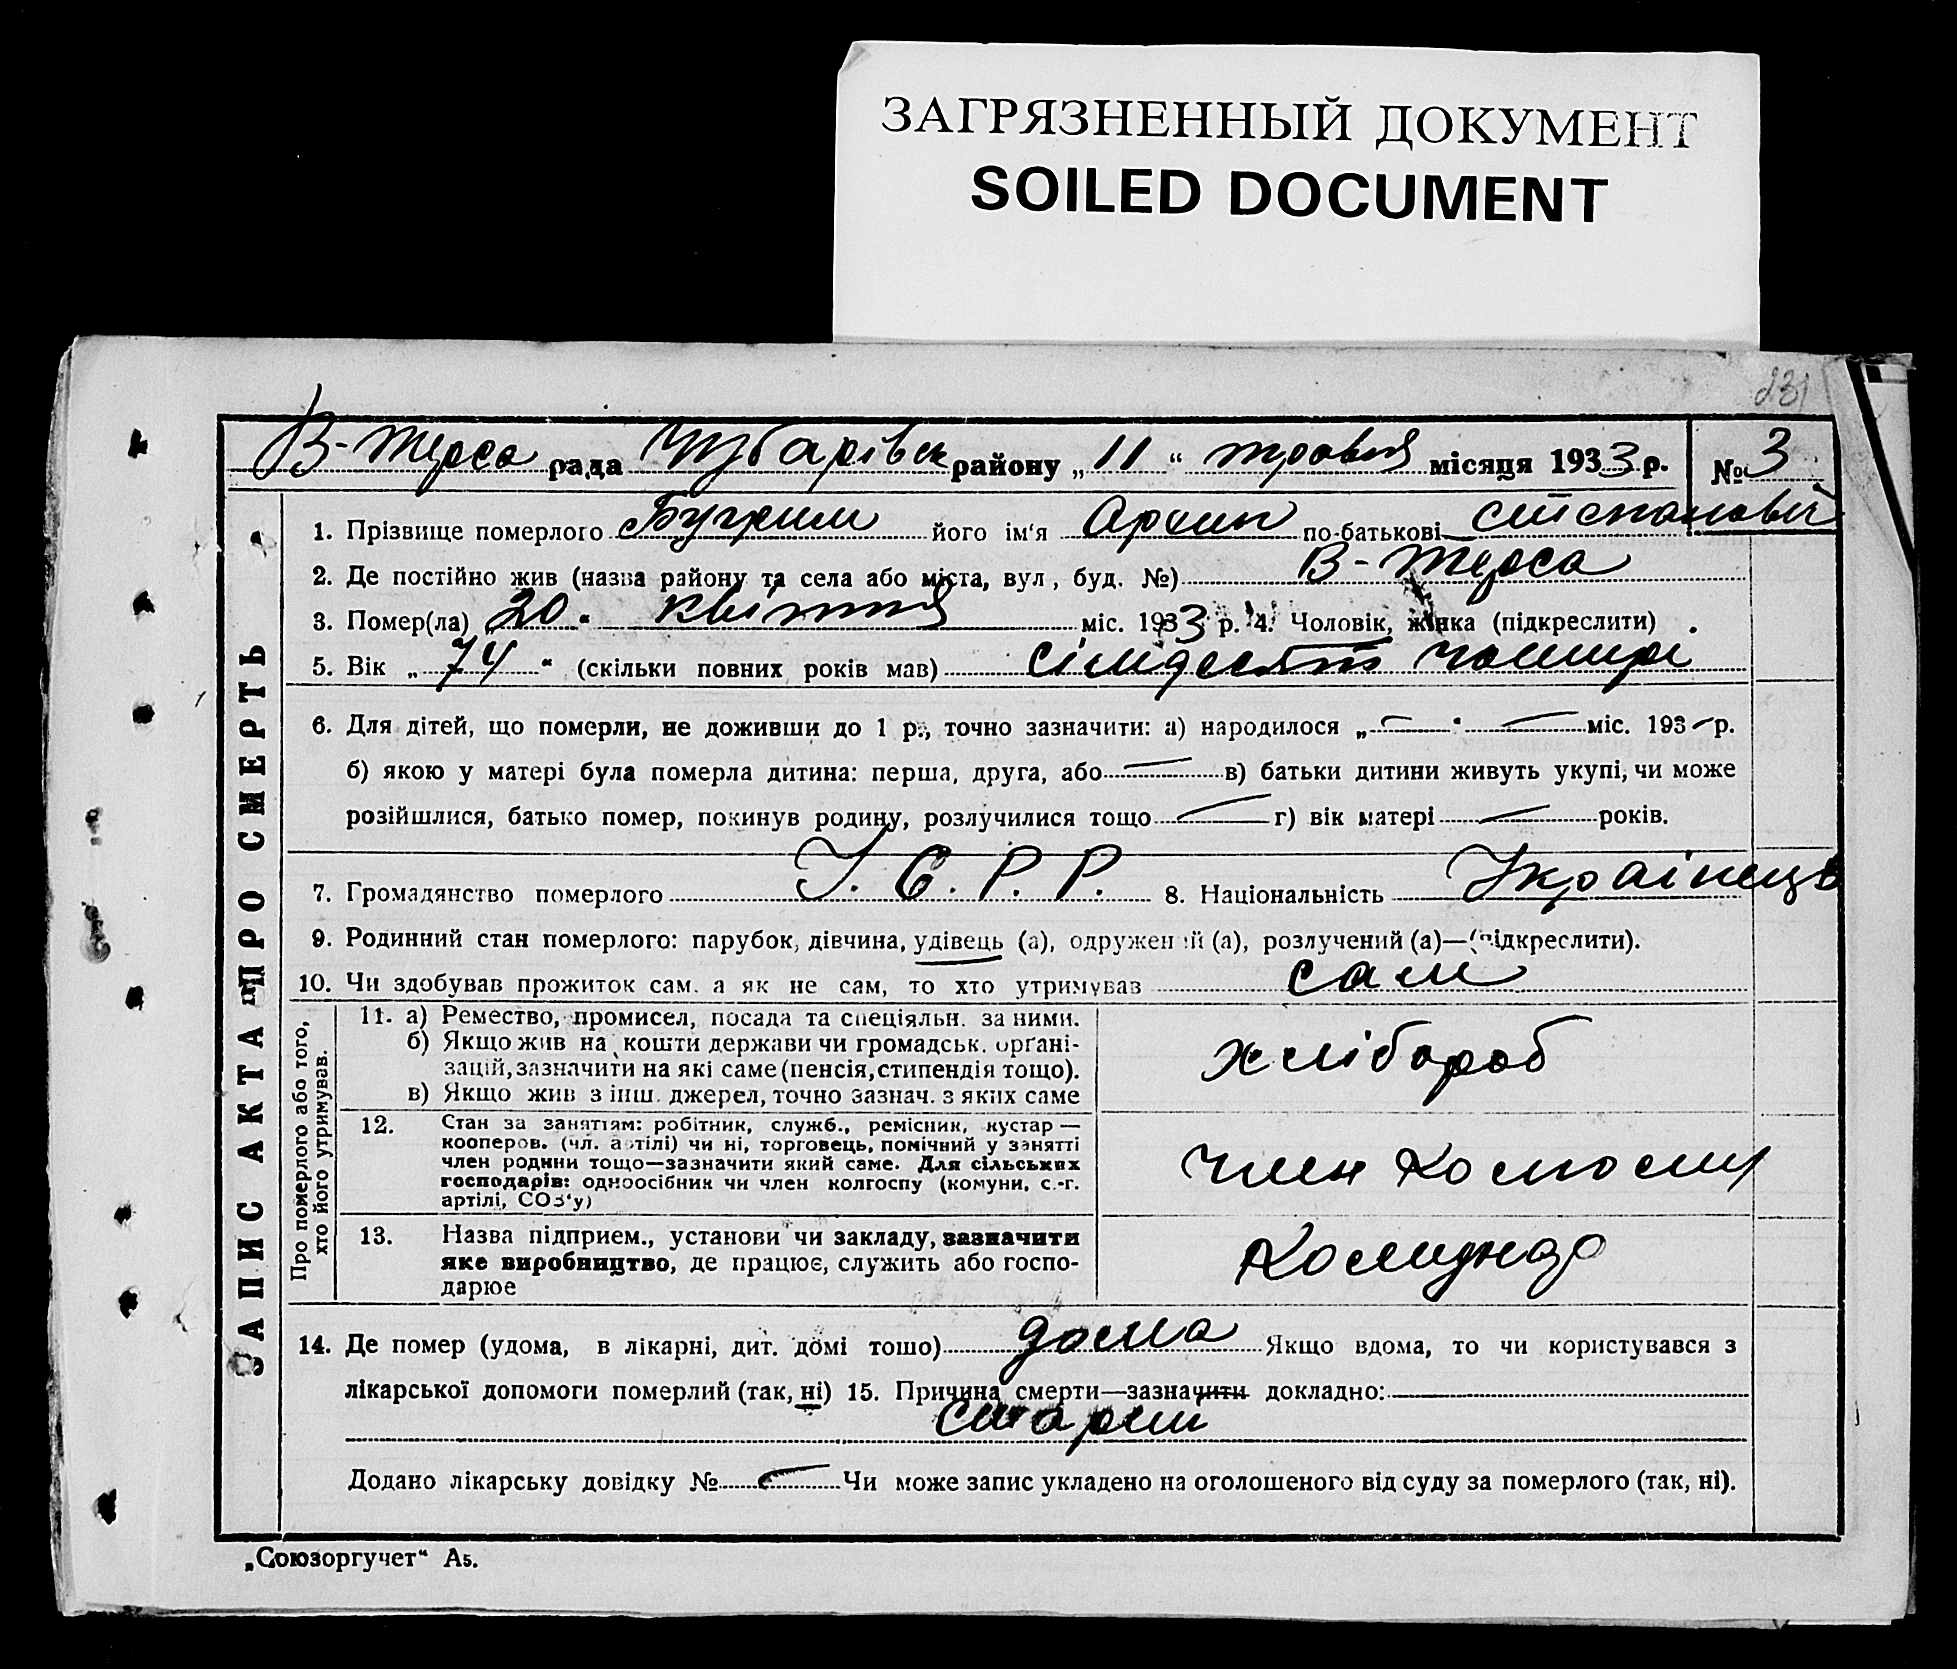 ЗАГРЯЗНЕННЫЙ ДОКУМЕНТ
SOILED DOCUMENT
231
В-Терса рада Чубарівськ району „11“ травня місяця 1933 р. № 3
ЗАПИС АКТА ПРО СМЕРТЬ
1. Прізвище померлого його ім'я Архип по-батькові Степанович
2. Де постійно жив (назва району та села або міста, вул, буд. №) В-Терса
3. Помер(ла) „20“ квітня міс. 1933 р. 4. Чоловік, жінка (підкреслити)
5. Вік „74“ (скільки повних років мав) сімдесят чотири
6. Для дітей, що померли, не доживши до 1 р., точно зазначити: а) народилося „—“ — міс. 193— р.
б) якою у матері була померла дитина: перша, друга, або — в) батьки дитини живуть укупі, чи може
розійшлися, батько помер, покинув родину, розлучилися тощо — г) вік матері — років.
7. Громадянство померлого У. С. Р. Р. 8. Національність Українець
9. Родинний стан померлого: парубок, дівчина, удівець (а), одружений (а), розлучений (а)—(підкреслити).
10. Чи здобував прожиток сам, а як не сам, то хто утримував сам
Про померлого або того,
хто його утримував.
11. а) Ремество, промисел, посада та спеціяльн. за ними.
б) Якщо жив на кошти держави чи громадськ. органі-
зацій, зазначити на які саме (пенсія, стипендія тощо).
в) Якщо жив з інш. джерел, точно зазнач. з яких саме
хлібороб
12. Стан за заняттям: робітник, служб., ремісник, кустар —
кооперов. (чл. артілі) чи ні, торговець, помічний у занятті
член родини тощо—зазначити який саме. Для сільських
господарів: одноосібник чи член колгоспу (комуни, с.-г.
артілі, СОЗ'у)
член
13. Назва підприєм., установи чи закладу, зазначити
яке виробництво, де працює, служить або госпо-
дарює
14. Де помер (удома, в лікарні, дит. домі тощо) дома Якщо вдома, то чи користувався з
лікарської допомоги померлий (так, ні) 15. Причина смерти—зазначити докладно:
Додано лікарську довідку № — Чи може запис укладено на оголошеного від суду за померлого (так, ні).
„Союзоргучет“ А5.